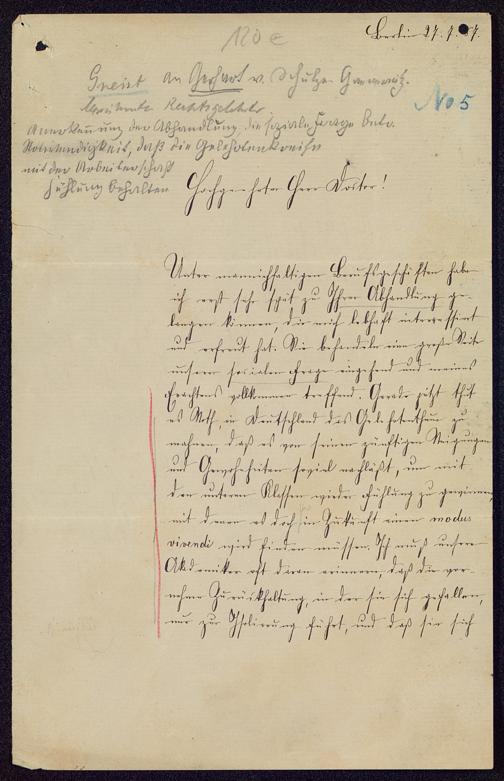 120 e
Berlin 27.7.87.
Gneist an Gerhart v. Schulze-Gaevernitz.
berühmter Rechtsgelehrter
No 5
Anerkennung der Abhandlung, die soziale Frage betr.
Notwendigkeit, daß die Gelehrtenkreise
mit der Arbeiterschaft
Fühlung behalten
Hochgeehrter Herr Doctor!
Unter mannichfaltigen Berufsgeschäften habe
ich erst sehr spät zu Ihrer Abhandlung ge-
langen können, die mich lebhaft interessirt
und erfreut hat. Sie behandeln eine große Seite
unserer socialen Frage eingehend und meines
Erachtens vollkommen treffend. Gerade jetzt thut
es Noth, in Deutschland das Gelehrtenthum zu
mahnen, daß es von seinen zünftigen Neigungen
und Gewohnheiten soviel nachläßt, um mit
den unteren Klassen wieder Fühlung zu gewinnen
mit denen es doch in Zukunft einen modus
vivendi wird finden müssen. Ich muß unsere
Akademiker oft daran erinnern, daß die vor-
nehme Zurückhaltung, in der sie sich gefallen,
nur zur Isolirung führt, und daß sie sich